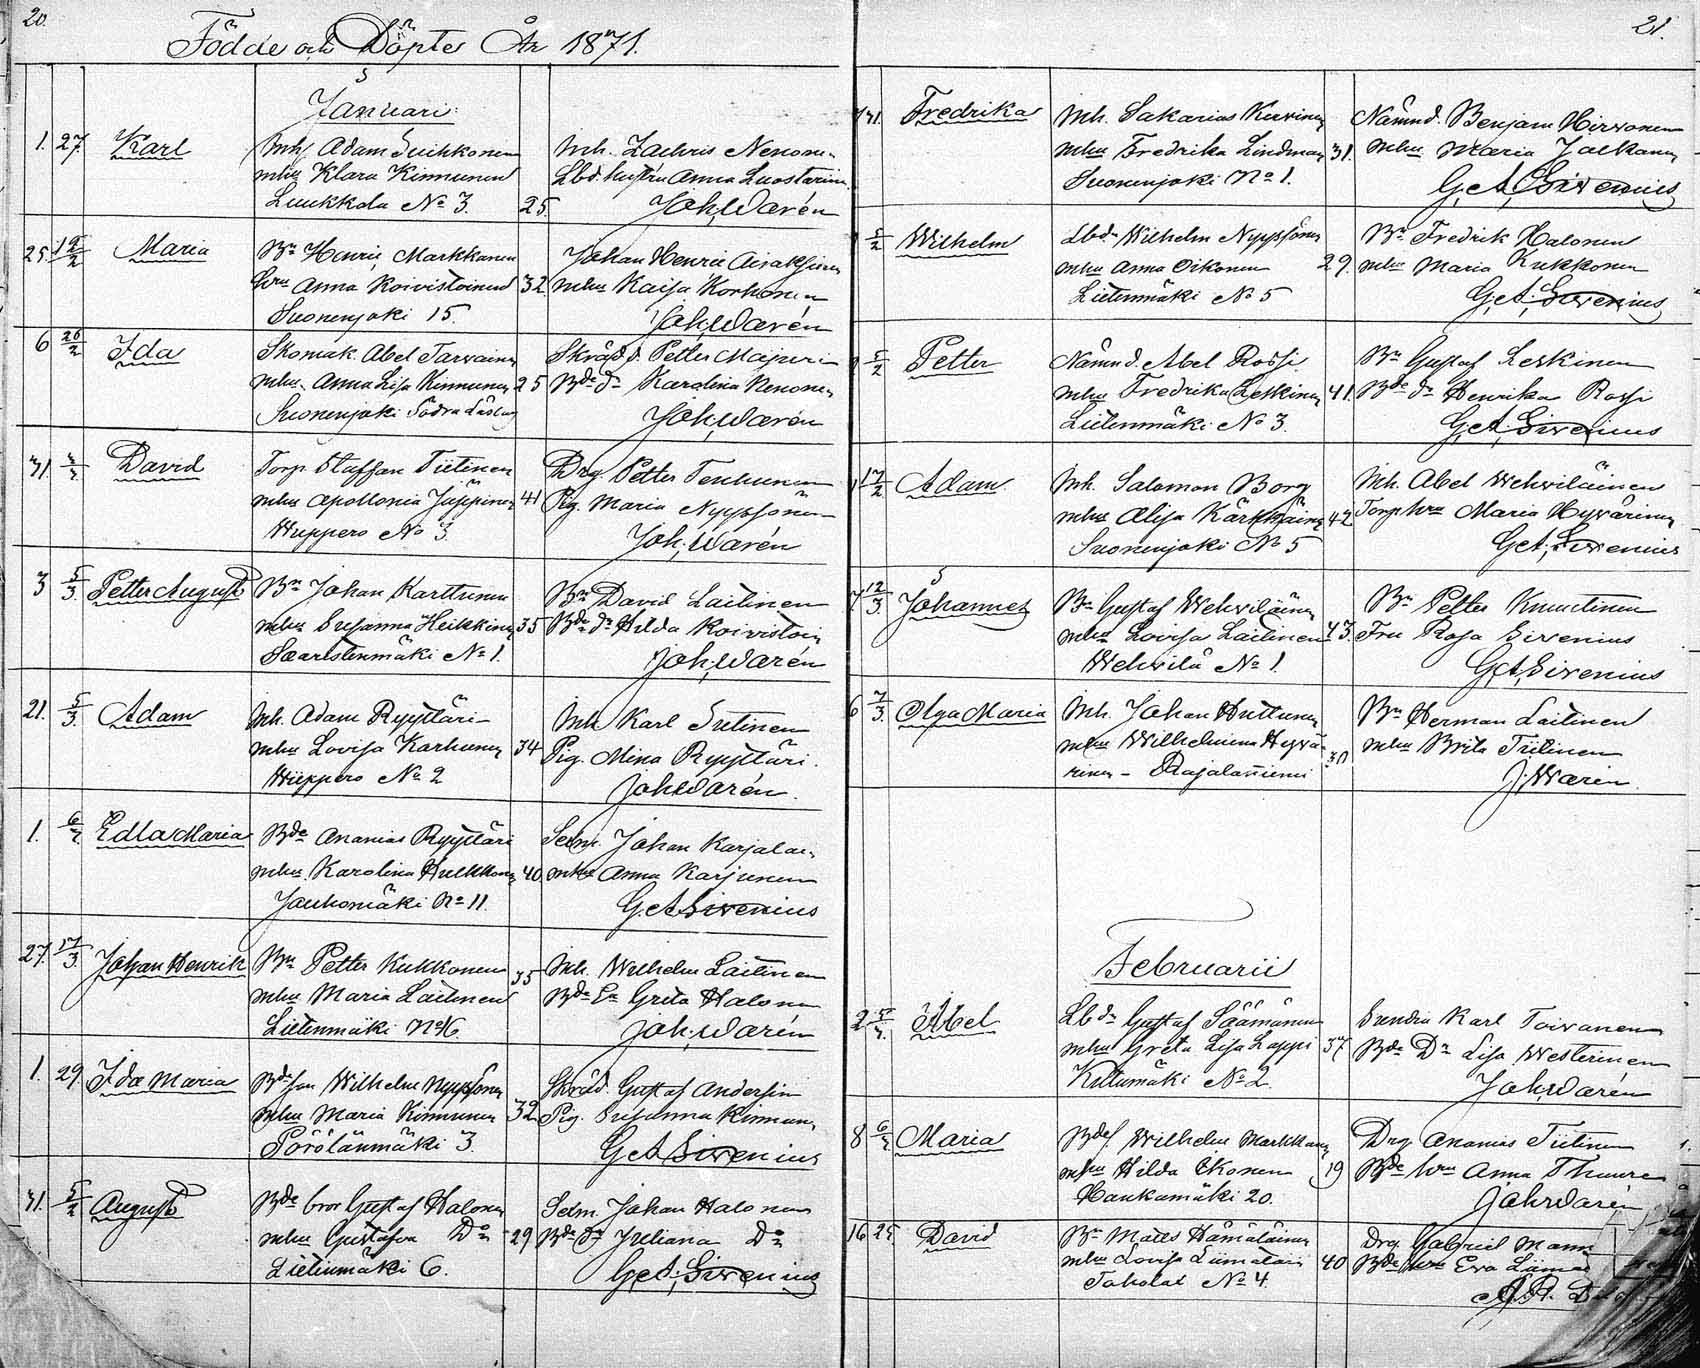 20.
Födde och Döpte År 1871.
Januari
1. 27. Karl
Inh. Adam Suihkonen
mhu Klara Kinnunen
Luukkola No 3. 25.
Inh. Zachris Nenonen
Lbd. hustru Anna Luostarin
Joh. Warén
25 12/2 Maria
Bn Henric Markkanen
hru Anna Koivistoinen 32
Suonenjoki 15.
Johan Henric Airaksinen
mhu Kaisa Korhonen
Joh. Warén
6 26/2 Ida
Skomak. Abel Tarvainen
mhu. Anna Lisa Kinnunen 25
Suonenjoki Södra
Skrädd. Petter Majuri
Bde dr Karolina Nenonen
Joh. Warén
31. David
Torp. Staffan Tiitinen
mhu Apollonia Jäppinen 41
Huppero No 3
Drg Petter Tenhunen
Pig. Maria Nyyssönen
Joh. Warén
3 5/3. Petter August
Bn Johan Karttunen
mhu Susanna Heikkinen 35
Saaristenmäki No 1.
Bn David Laitinen
Bde dr Hilda Koivistoin
Joh. Warén
21. 5/3. Adam
Inh. Adam Ryyttäri
mhu Lovisa Karhunen 34
Huppero No 2
Inh Karl Sutinen
Pig. Mina Ryyttäri.
Joh Warén.
1. Edla Maria
Bde Ananias Ryyttäri
mhu. Karolina Hulkkonen 40.
Jauhomäki No 11.
Selm. Johan Karjalai
mhu Anna Karjunen
G. A. Sirenius
27. 17/3. Johan Henrik
Bn Petter Kukkonen 35
mhu Maria Laitinen
Lietenmäki No 16.
Inh. Wilhelm Laitinen
Bde Grita Halonen
Joh. Warén
1. 29. Ida Maria
Bdeson Wilhelm Nyyssönen
mhu Maria Kinnunen 32
Pörölänmäki 3.
Skräd. Gustaf Andersin
Pig. Susanna Kinnun
G. A. Sirenius
31. 5/2 August
Bde bror Gustaf Halonen
mhu Gustafva Do 29
Lietenmäki 6.
Selm. Johan Halonen
Bde dr Juliana Do
G. A. Sirenius
21.
31. Fredrika
Inh. Sakarias Kervinen
mhu Fredrika Lindman 31.
Suonenjoki No 1.
Nämnd. Benjam Hirvonen
mhu Maria Jalkanen
G. A. Sirenius
5/2 Wilhelm
Lbd. Wilhelm Nyyssönen
mhu Anna Oikonen 29.
Lietenmäki No 5
Bn Fredrik Halonen
mhu Maria Kukkonen
G. A. Sirenius
5/2 Petter
Nämnd. Abel Rossi
mhu Fredrika Leskinen 41.
Lietenmäki No 3.
Bn Gustaf Leskinen
Bde dr Henrika Rossi
G. A. Sirenius
17/2 Adam
Inh. Salomon Borg
mhu Alisa Kärkkäinen 42
Suonenjoki No 5
Inh. Abel Wehviläinen
Torp hru Maria Hyvärinen
G. A. Sirenius
12/3. Johannes
Bn Gustaf Wehviläinen
mhu Lovisa Laitinen 43.
Wehvilä No 1.
Bn Petter Knuutinen
Fru Rosa Sirenius
G. A. Sirenius
6 7/3. Olga Maria
Inh. Johan Huttunen
mhu Wilhelmina Hyvä-
rinen - Rajalanniemi 30
Bn Herman Laitinen
mhu Brita Tiitinen
J. Warén.
Februarii
2 Abel
Lbd. Gustaf Säämänen
mhu Greta Lisa Lappi 37
Kutumäki No 2.
Karl Toivanen
Bde Dr Lisa Westerinen
Joh Warén
8 Maria
Bdes Wilhelm Markkanen
mhu Hilda Ikonen 19
Haukamäki 20.
Drg Ananias Tiitinen
Bde hru Anna Thuure
Joh Warén
16 25. David
Bn Mats Hämäläinen
mhu Lovisa Liimatain 40
Taholat No 4
Drg Gabriel Mann
Bde hru Eva